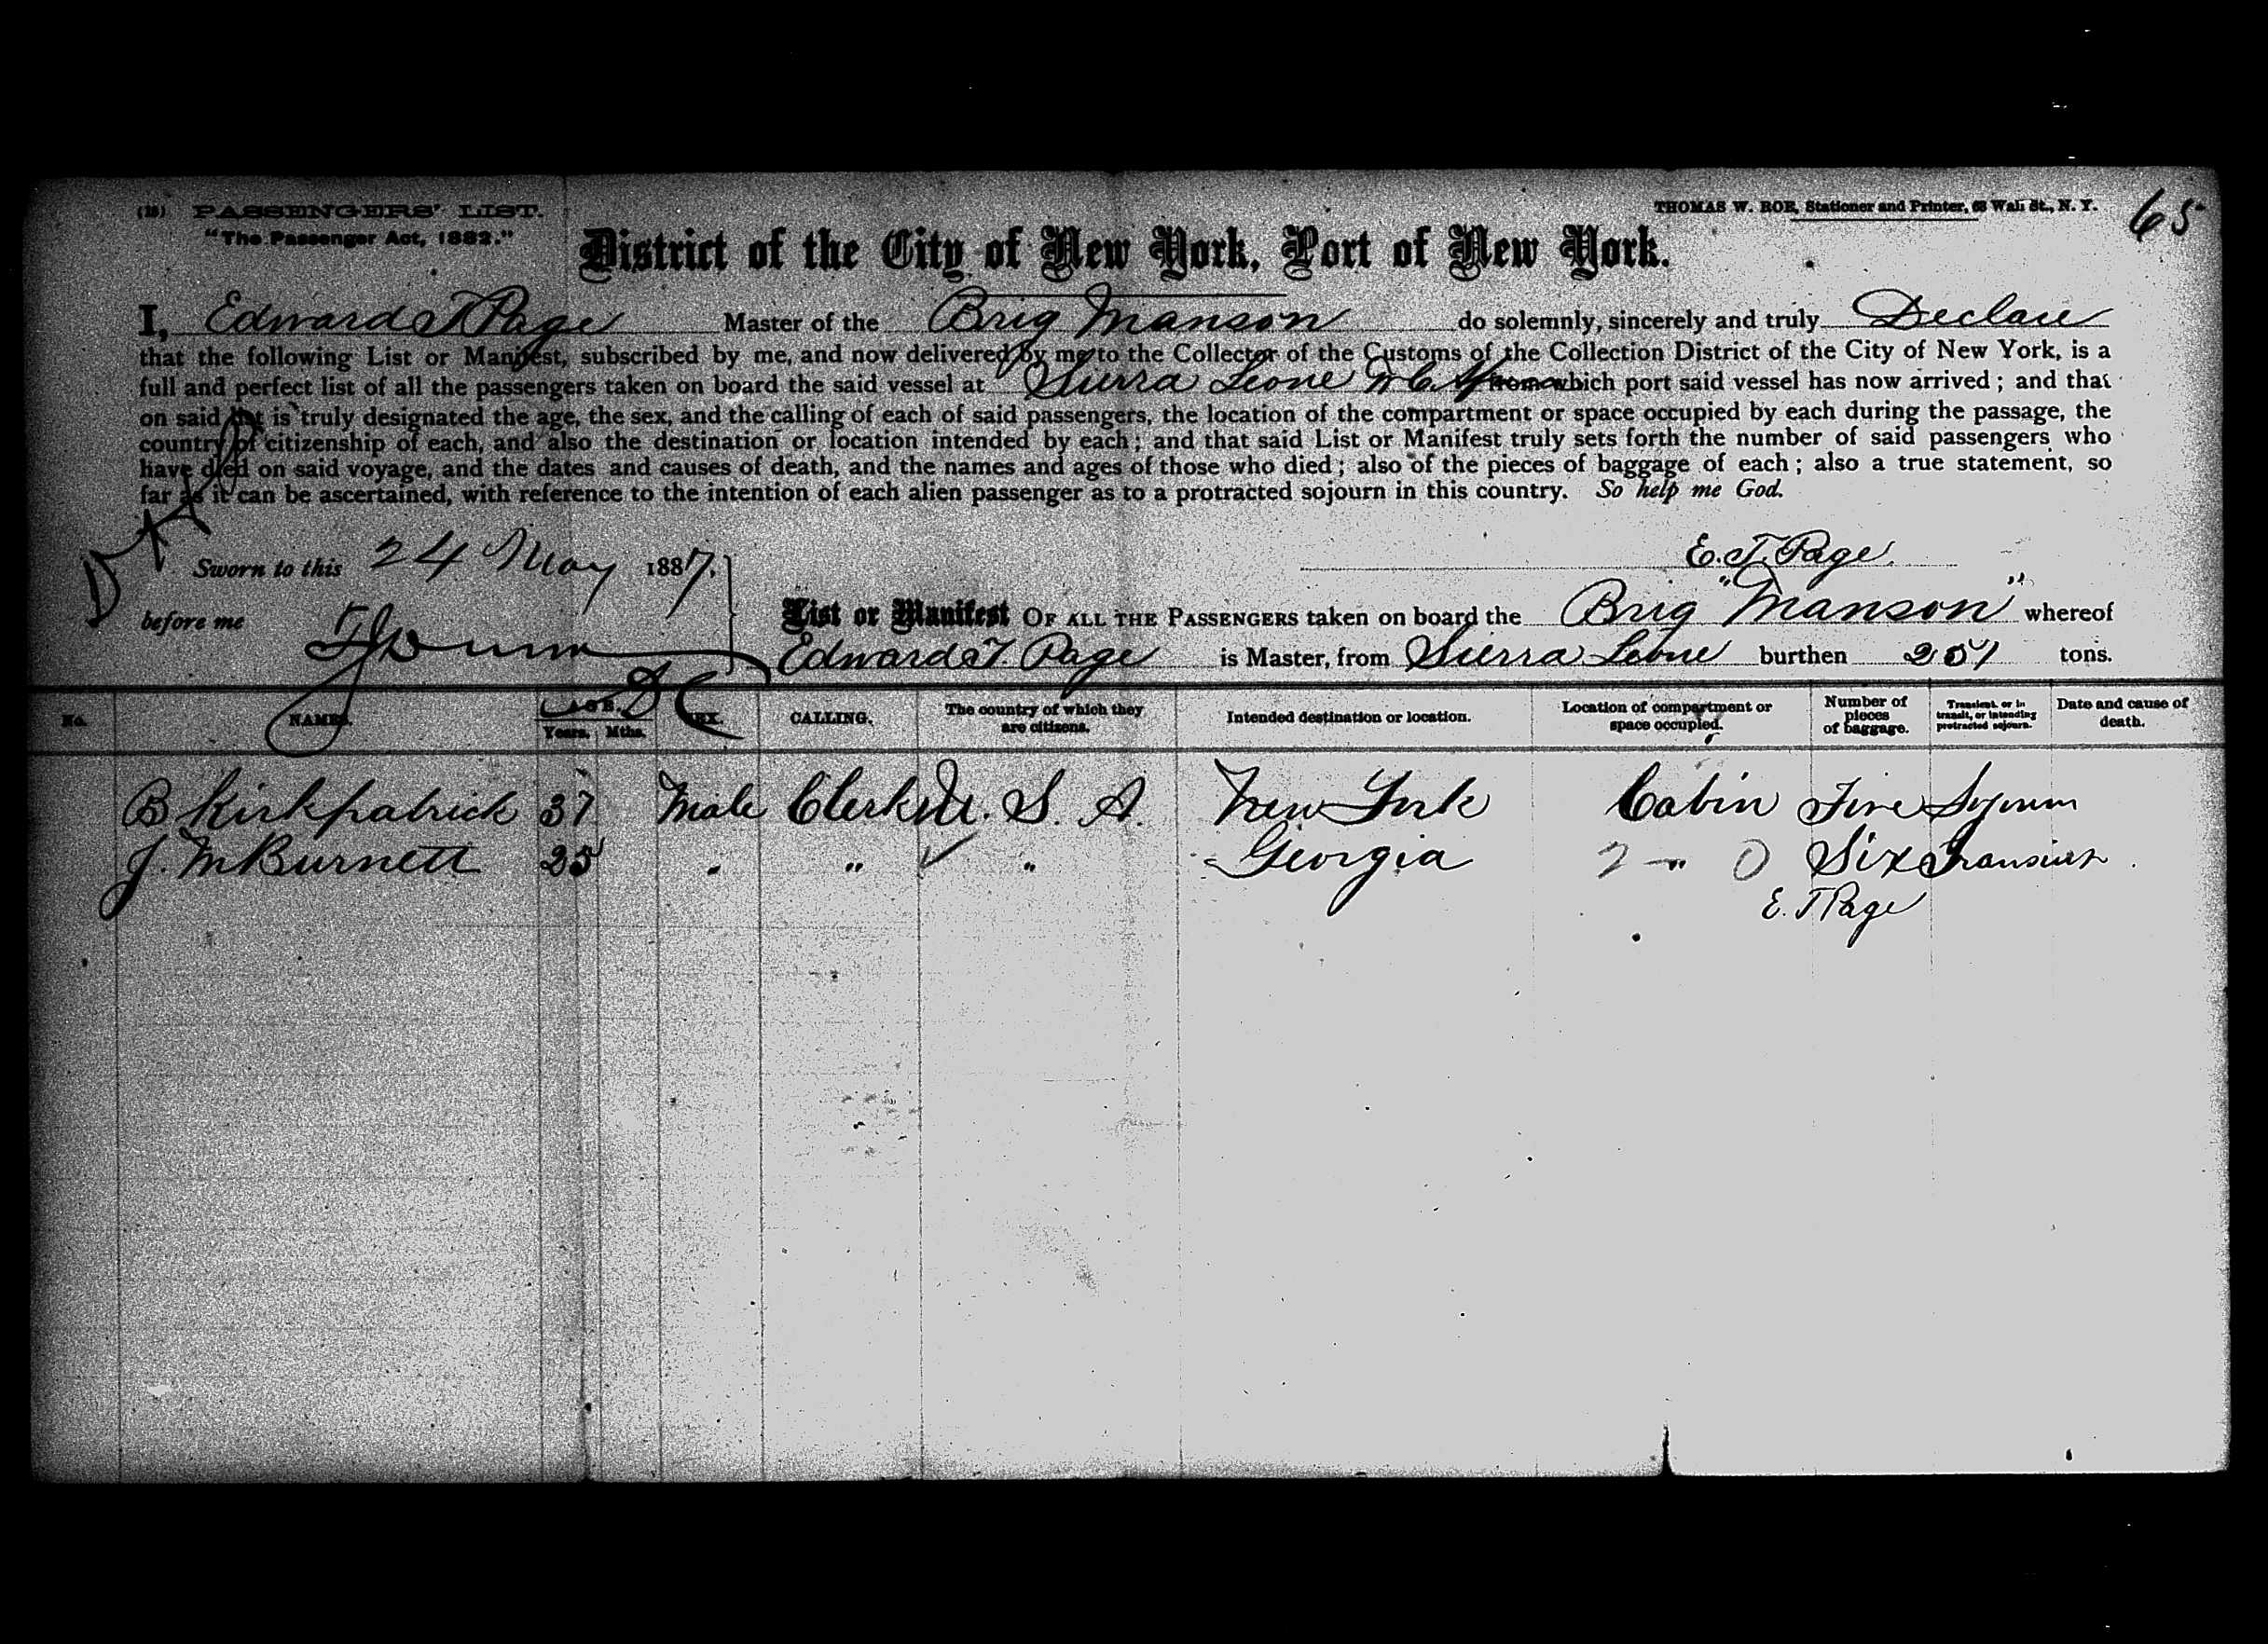 (18) PASSENGERS' LIST.
"The Passenger Act, 1882."
THOMAS W. ROE, Stationer and Printer, 63 Wall St., N. Y.
65
District of the City of New York, Port of New York.
I, Edward T Page Master of the Brig Manson do solemnly, sincerely and truly Declare
that the following List or Manifest, subscribed by me, and now delivered by me to the Collector of the Customs of the Collection District of the City of New York, is a
full and perfect list of all the passengers taken on board the said vessel at Sierra Leone W. C. Africa from which port said vessel has now arrived; and that
on said list is truly designated the age, the sex, and the calling of each of said passengers, the location of the compartment or space occupied by each during the passage, the
country of citizenship of each, and also the destination or location intended by each; and that said List or Manifest truly sets forth the number of said passengers who
have died on said voyage, and the dates and causes of death, and the names and ages of those who died; also of the pieces of baggage of each; also a true statement, so
far as it can be ascertained, with reference to the intention of each alien passenger as to a protracted sojourn in this country. So help me God.
Sworn to this 24 May 1887.
E. T. Page.
before me
List or Manifest OF ALL THE PASSENGERS taken on board the Brig "Manson" whereof
Edward T. Page is Master, from Sierra Leone burthen 251 tons.
No. NAMES. AGE. Years. Mths. SEX. CALLING. The country of which they are citizens. Intended destination or location. Location of compartment or space occupied. Number of pieces of baggage. Transient, or in transit, or intending protracted sojourn. Date and cause of death.
B Kirkpatrick 37 Male Clerk U. S. A. New York Cabin Five Sojourn
J. M Burnett 25 " " " Georgia 2 " 0 Six Transient
E. T Page